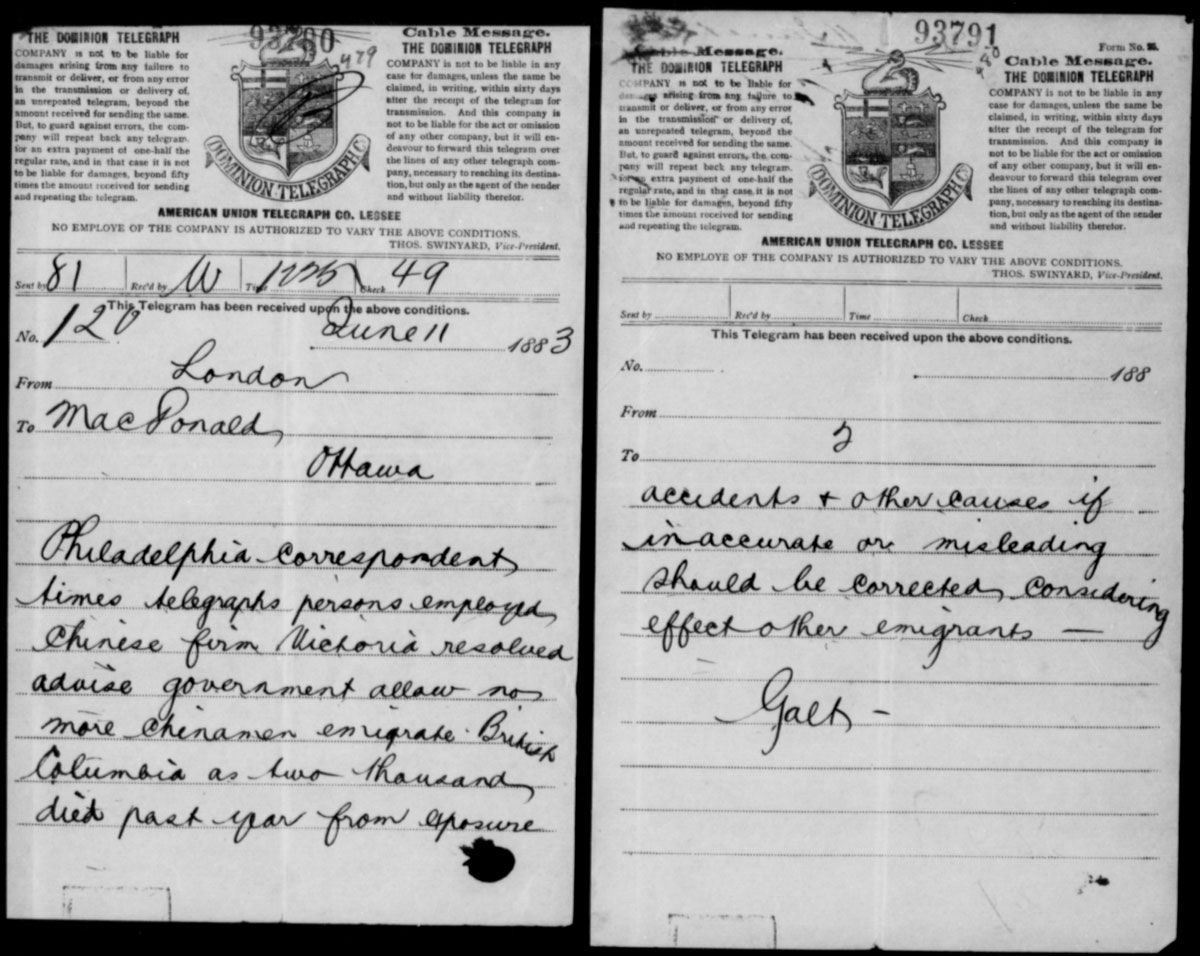 93790
479
Cable Message.
THE DOMINION TELEGRAPH
COMPANY is not to be liable for
damages arising from any failure to
transmit or deliver, or from any error
in the transmission or delivery of,
an unrepeated telegram, beyond the
amount received for sending the same.
But, to guard against errors, the com-
pany will repeat back any telegram.
for an extra payment of one-half the
regular rate, and in that case it is not
to be liable for damages, beyond fifty
times the amount received for sending
and repeating the telegram.
DOMINION TELEGRAPH CO.
THE DOMINION TELEGRAPH
COMPANY is not to be liable in any
case for damages, unless the same be
claimed, in writing, within sixty days
after the receipt of the telegram for
transmission. And this company is
not to be liable for the act or omission
of any other company, but it will en-
deavour to forward this telegram over
the lines of any other telegraph com-
pany, necessary to reaching its destina-
tion, but only as the agent of the sender
and without liability therefor.
AMERICAN UNION TELEGRAPH CO. LESSEE
NO EMPLOYE OF THE COMPANY IS AUTHORIZED TO VARY THE ABOVE CONDITIONS.
THOS. SWINYARD, Vice-President.
Sent by 81 Rec'd by W Time 1225 Check 49
This Telegram has been received upon the above conditions.
No. 120 June 11 1883
From London
To MacDonald
Ottawa
Philadelphia correspondent
times telegraphs persons employed
Chinese firm Victoria resolved
advise government allow no
more chinamen emigrate British
Columbia as two thousand
died past year from exposure
93791
480
Form No.
Cable Message.
THE DOMINION TELEGRAPH
COMPANY is not to be liable for
damages arising from any failure to
transmit or deliver, or from any error
in the transmission or delivery of,
an unrepeated telegram, beyond the
amount received for sending the same.
But, to guard against errors, the com-
pany will repeat back any telegram.
for an extra payment of one-half the
regular rate, and in that case, it is not
to be liable for damages, beyond fifty
times the amount received for sending
and repeating the telegram.
DOMINION TELEGRAPH CO.
Cable Message.
THE DOMINION TELEGRAPH
COMPANY is not to be liable in any
case for damages, unless the same be
claimed, in writing, within sixty days
after the receipt of the telegram for
transmission. And this company is
not to be liable for the act or omission
of any other company, but it will en-
deavour to forward this telegram over
the lines of any other telegraph com-
pany, necessary to reaching its destina-
tion, but only as the agent of the sender
and without liability therefor.
AMERICAN UNION TELEGRAPH CO. LESSEE
NO EMPLOYE OF THE COMPANY IS AUTHORIZED TO VARY THE ABOVE CONDITIONS.
THOS. SWINYARD, Vice-President.
Sent by Rec'd by Time Check
This Telegram has been received upon the above conditions.
No. 188
From
2
To
accidents + other causes if
inaccurate or misleading
should be corrected considering
effect other emigrants —
Galt -